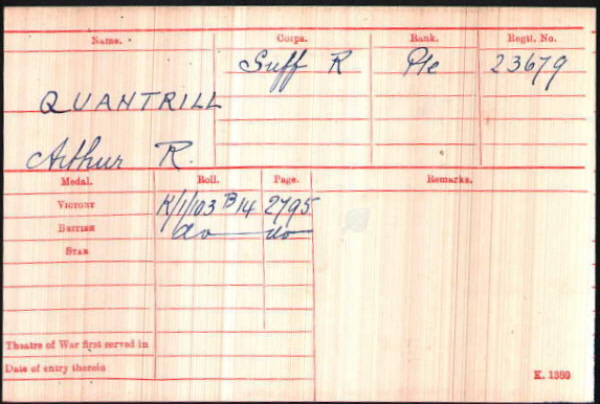 Name. Corps. Rank. Regtl. No.
Suff R Pte 23679
QUANTRILL
Arthur R.
Medal. Roll. Page. Remarks.
VICTORY K/1/103 B14 2795
BRITISH do do
STAR
Theatre of War first served in
Date of entry therein
K. 1380